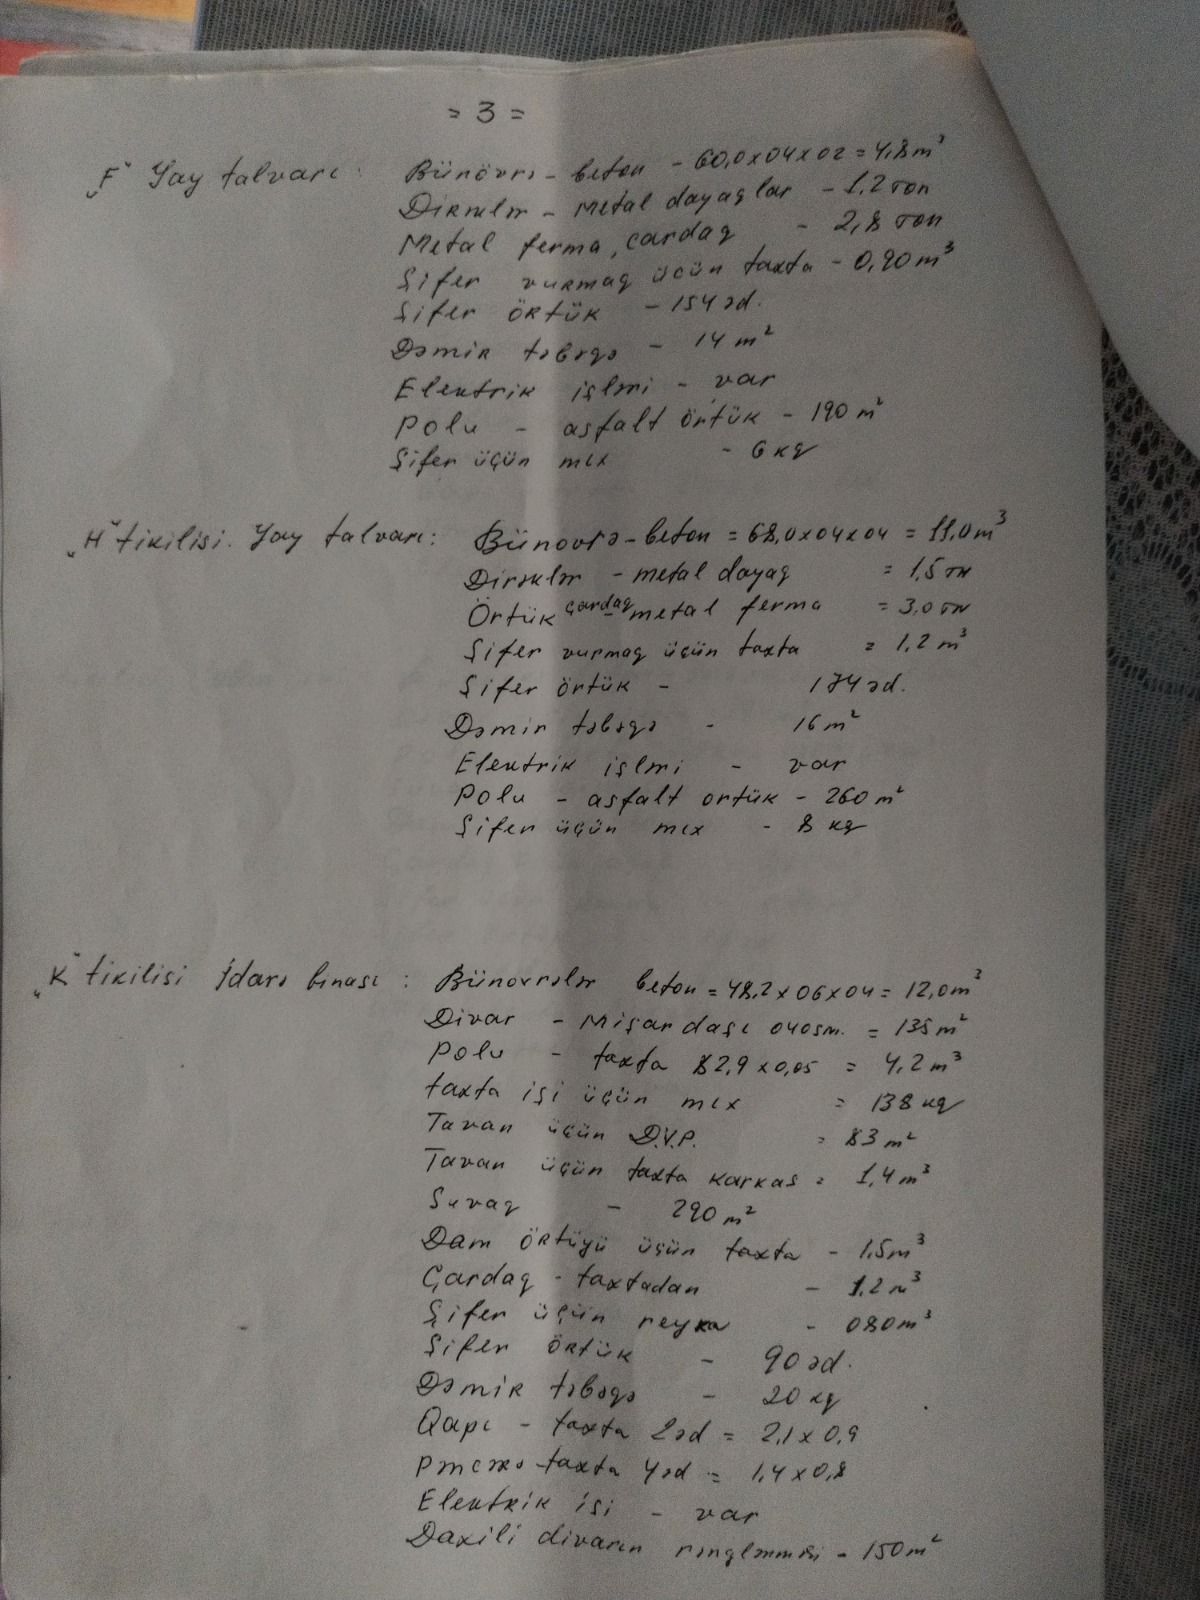 = 3 =
„F“ Yay talvarı: Bünövrə - beton - 60,0x04x02 = 4,8m³
Dirəklər - Metal dayaqlar - 1,2 тon
Metal ferma, çardaq - 2,8 тon
Şifer vurmaq üçün taxta - 0,90m³
Şifer örtük - 154 əd.
Dəmir təbəqə - 14 m²
Elektrik işləri - var
Polu - asfalt örtük - 190 m²
Şifer üçün mıx - 6 kq
„H“ tikilisi. Yay talvarı: Bünövrə - beton = 68,0x04x04 = 11,0m³
Dirəklər - metal dayaq = 1,5 тн
Örtük çardaq metal ferma = 3,0 тн
Şifer vurmaq üçün taxta = 1,2 m³
Şifer örtük - 174 əd.
Dəmir təbəqə - 16 m²
Elektrik işləri - var
Polu - asfalt ortük - 260 m²
Şifer üçün mıx - 8 kq
„K“ tikilisi İdarə binası: Bünövrələr beton = 48,2 x 06 x 04 = 12,0m³
Divar - Mişar daşı 040sm. = 135 m²
Polu - taxta 82,9 x 0,05 = 4,2 m³
taxta işi üçün mıx = 138 kq
Tavan üçün D.V.P. = 83 m²
Tavan üçün taxta karkas = 1,4 m³
Suvaq - 290 m²
Dam örtüyü üçün taxta - 1,5m³
Çardaq - taxtadan - 1,2 m³
Şifer üçün reyka - 080m³
Şifer örtük - 90 əd.
Dəmir təbəqə - 20 kq
Qapı - taxta 2əd = 2,1 x 0,9
Pəncərə - taxta 4əd = 1,4 x 0,8
Elektrik işi - var
Daxili divarın rənglənməsi - 150 m²